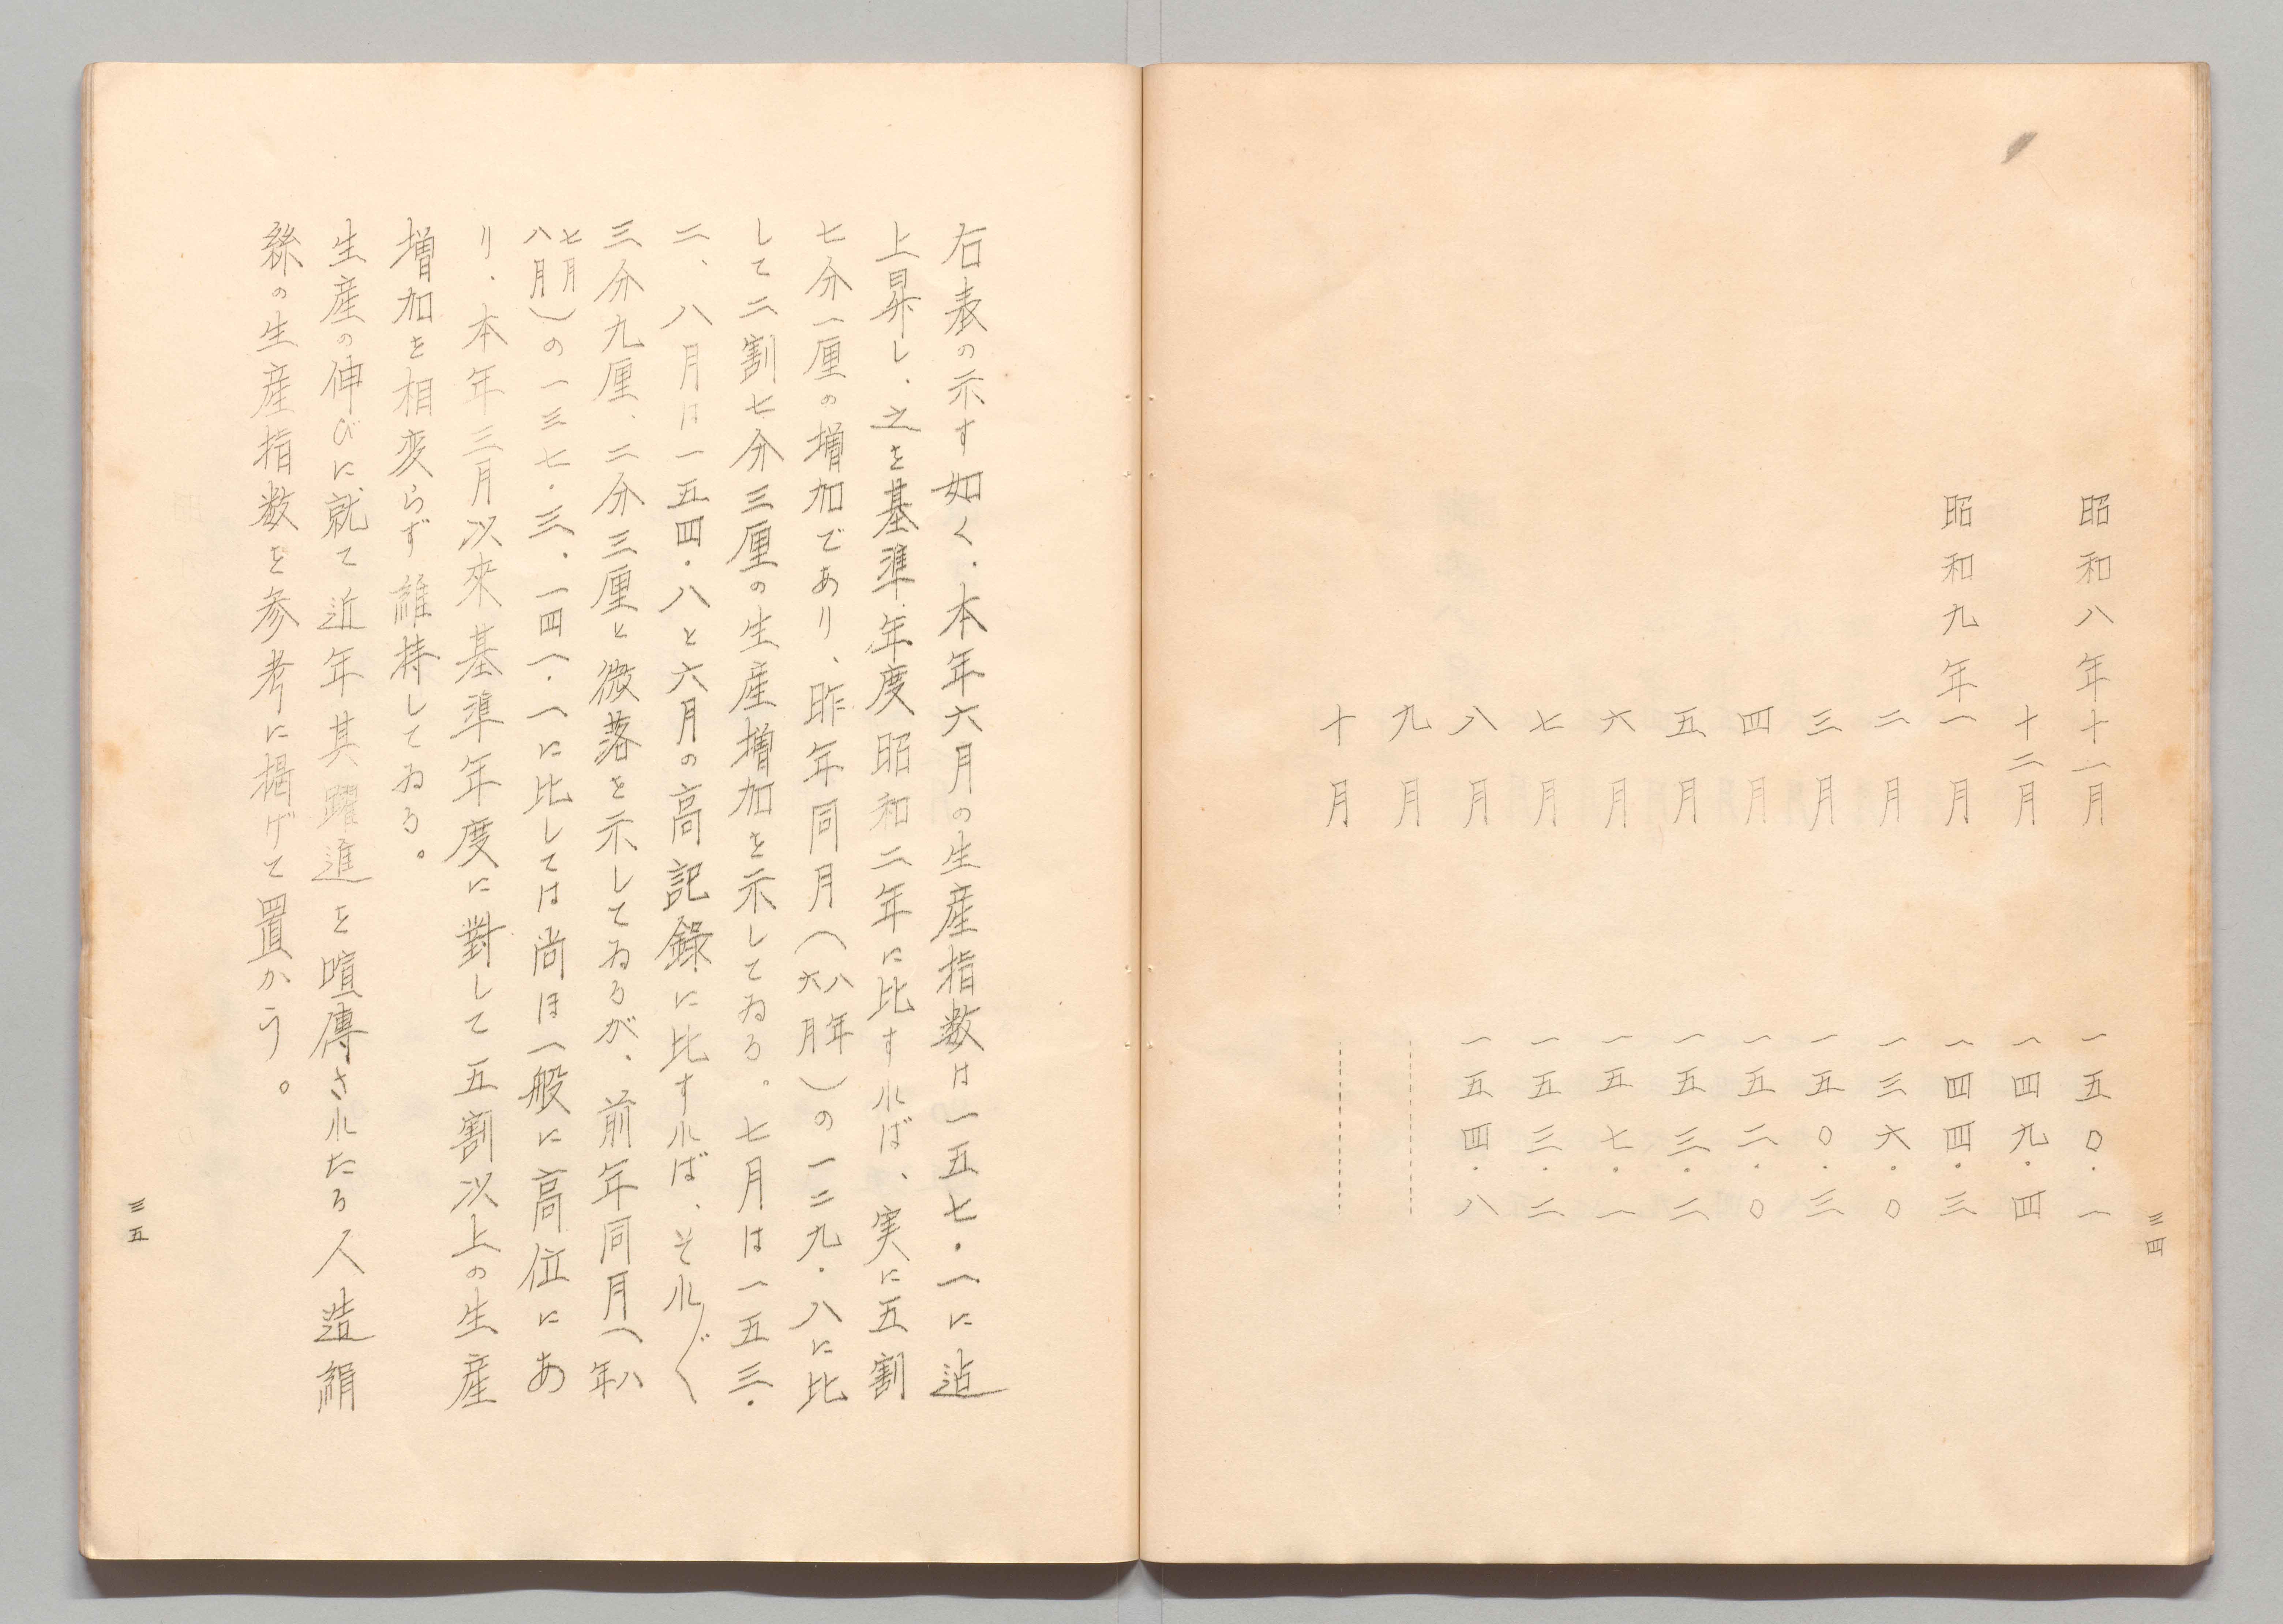 昭和八年十一月　一五〇・一
十二月　一四九・四
昭和九年一月　一四四・三
二月　一三六・〇
三月　一五〇・三
四月　一五二・〇
五月　一五三・二
六月　一五七・一
七月　一五三・二
八月　一五四・八
九月
十月
三四
右表の示す如く、本年六月の生産指数は一五七・一に迠
上昇し、之を基準年度昭和二年に比すれば、実に五割
七分一厘の増加であり、昨年同月（八年六月）の一二九・八に比
して二割七分三厘の生産増加を示してゐる。七月は一五三・
二、八月は一五四・八と六月の高記録に比すれば、それ〴〵
三分九厘、二分三厘と微落を示してゐるが、前年同月（八年
七月八月）の一三七・三、一四一・一に比しては尚ほ一般に高位にあ
り、本年三月以來基準年度に對して五割以上の生産
増加を相変らず維持してゐる。
生産の伸びに就て近年其躍進を喧傳されたる人造絹
絲の生産指数を参考に掲げて置かう。
三五